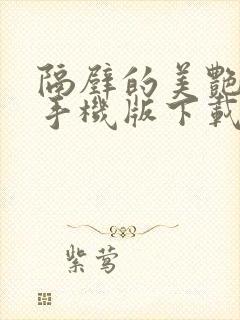 隔壁的美艷
手機版下載
紫莺